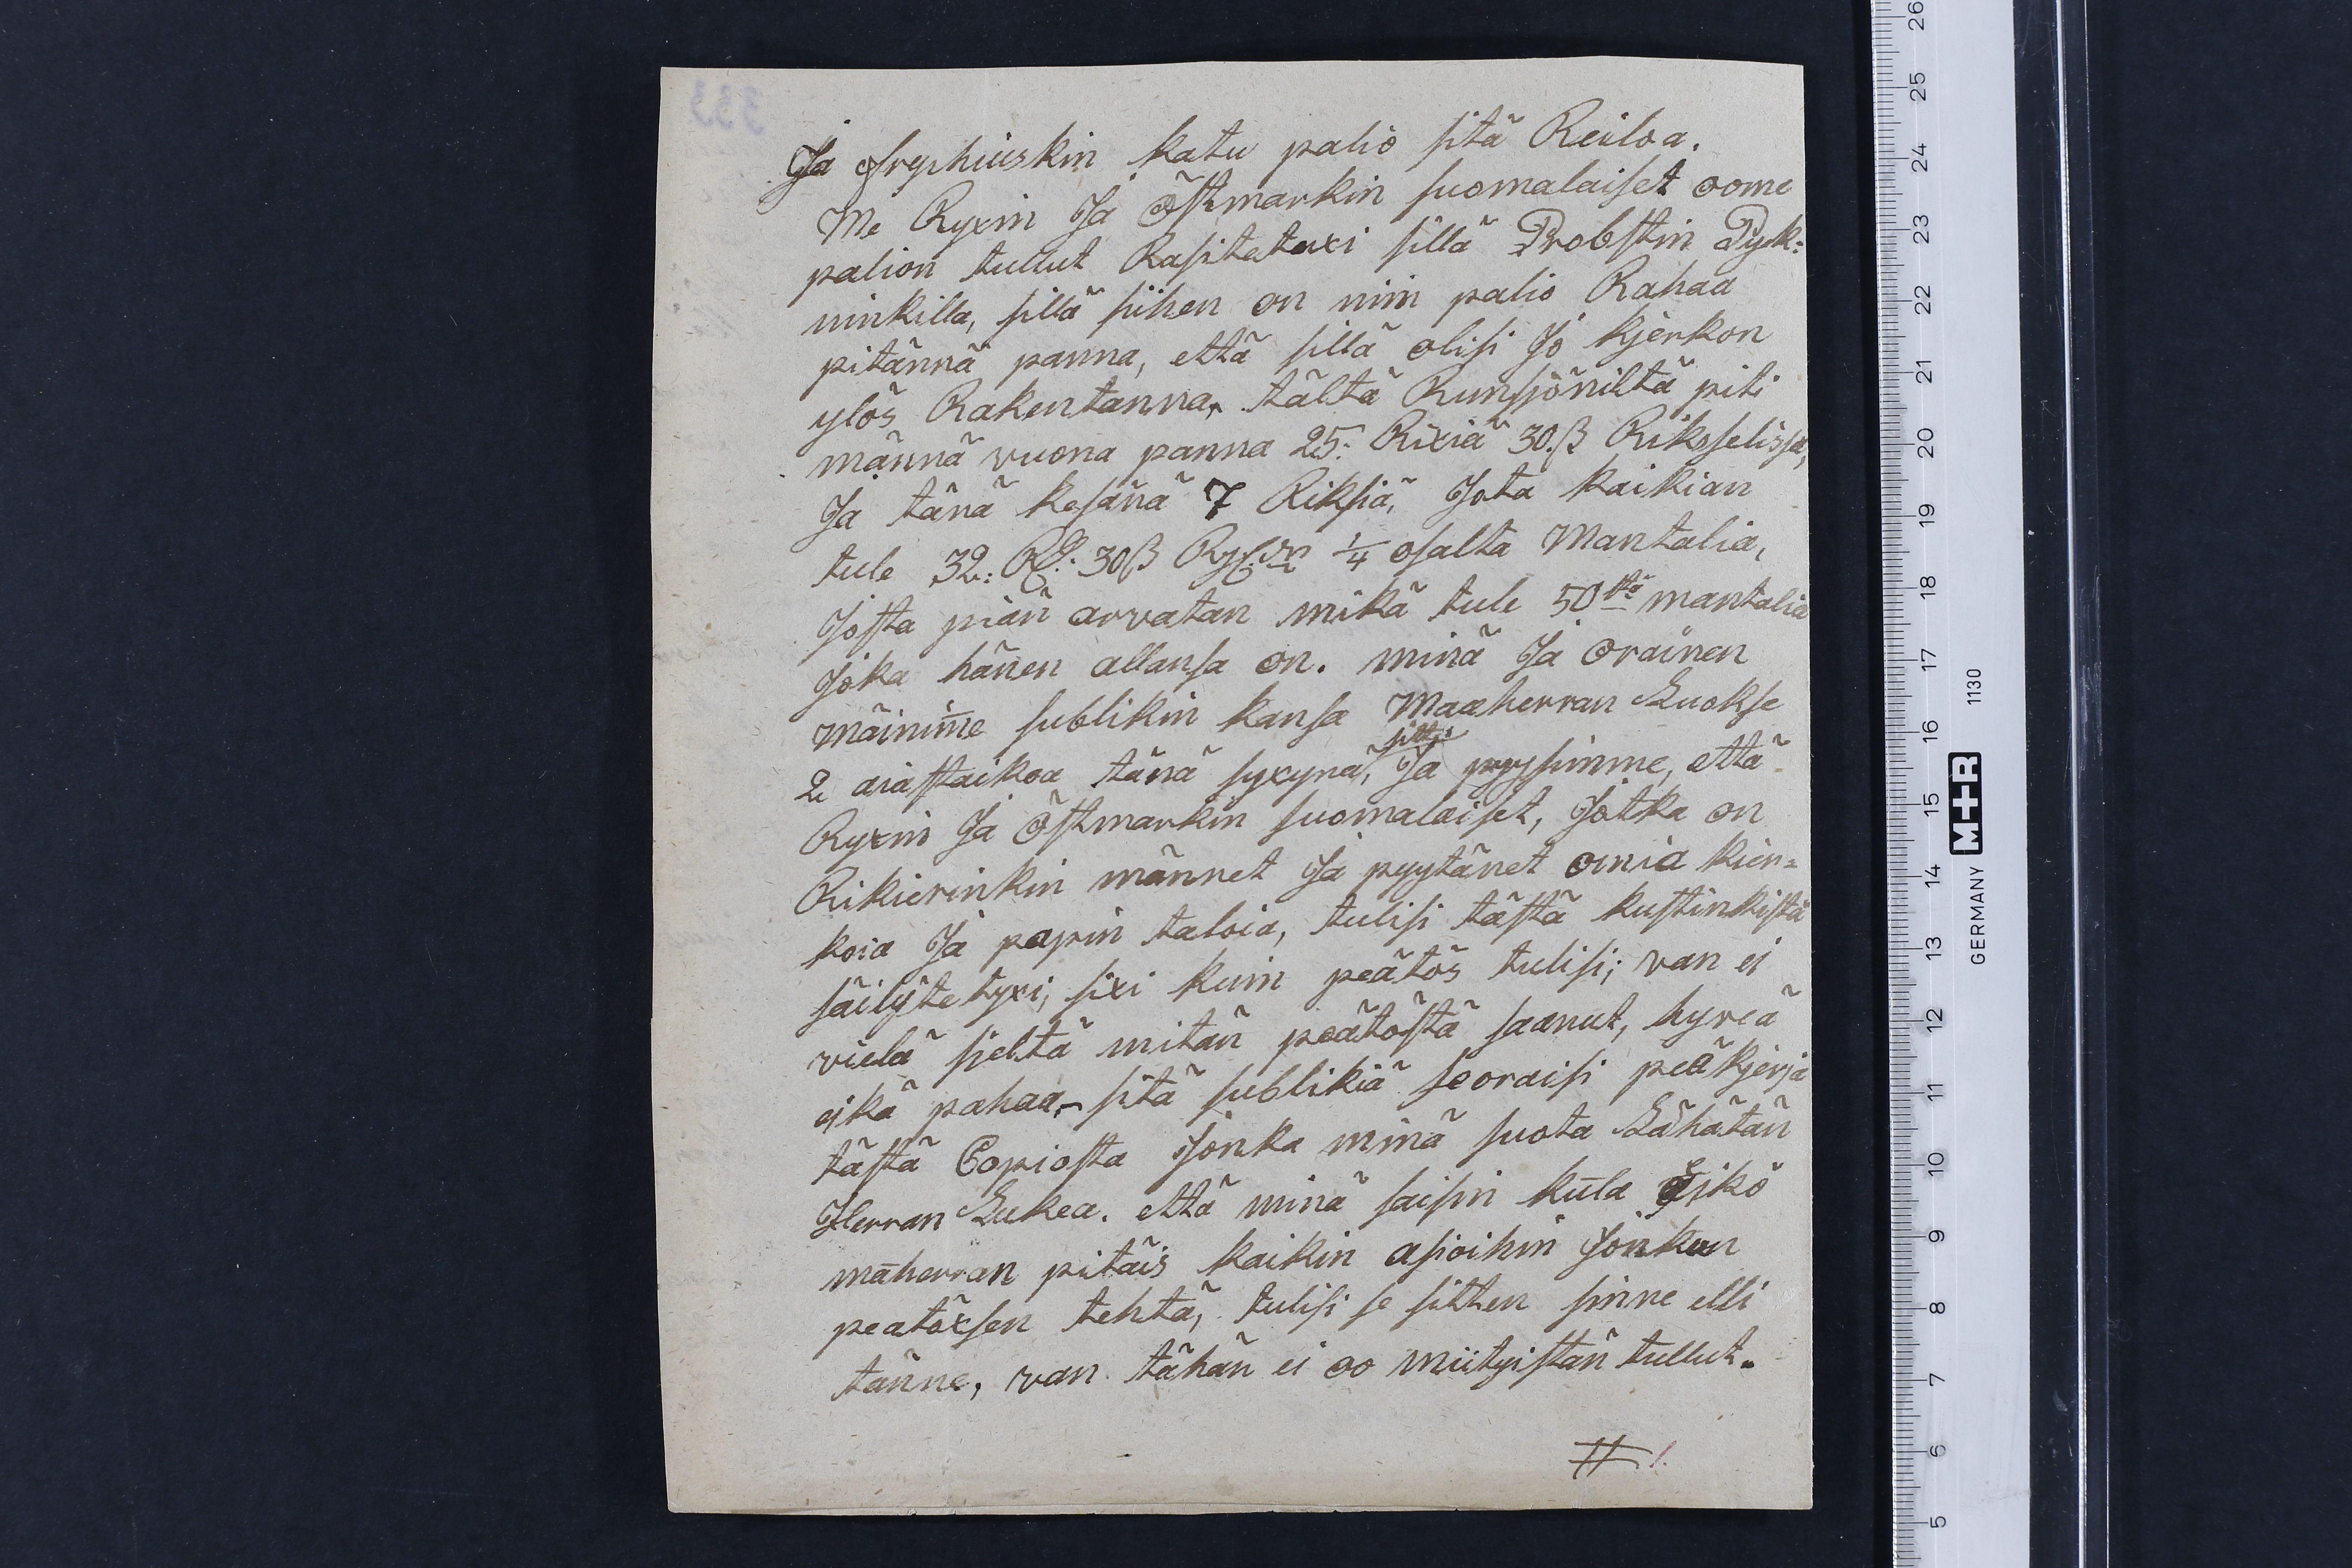 Ja Fryxhiuskin katu palio sitä Reiloa.
Me Ryxin Ja Östmarkin suomalaiset oome
palion tullut Rasitetuxi sillä Probstin Pyk:
ninkilla, sillä siihen on niin palio Rahaa
pitännä panna, että sillä olisi Jo kjerkon
ylös Rakentanna, tältä Runsjöniltä piti
männä vuona panna 25: Rixiä 30.ß Riksselissa,
Ja tänä kesänä 7 Riksiä, Jota kaikian
tule 32: 30ß 1/4 osalta Mantalia,
Josta piän arvatan mikä tule 50 mantalia
Joka hänen allansa on. minä Ja Oräinen
mäinime sublikin kansa Maaherran Luokse
2 aiastaikoa tänä syxynä, Ja pyysimme, että
Ryxin Ja Östmarkin suomalaiset, Jotka on
Rikierinkin männet Ja pyytänet omia kien=
koia Ja papin taloia, tulisi tästä kustinkista
säilytetyxi, sixi kuin peätös tulisi; van ei
vielä sieltä mitän peätöstä saanut, hyveä
eikä pahaa, sitä sublikiä seoraisi peäkjerja
tästä Copiosta Jonka minä suota Lähätän
Herran Lukea. että minä saisin kula Eikö
maherran pitäis kaikin asioihin Jonkun
peatöxsen tehtä, tulisi se sitten sinne elli
tänne, van tähän ei oo miityistän tullut.
333
26
25
24
23
22
21
20
19
18
17
16
15
14
13
12
11
10
9
8
7
6
5
1130
M+R
GERMANY